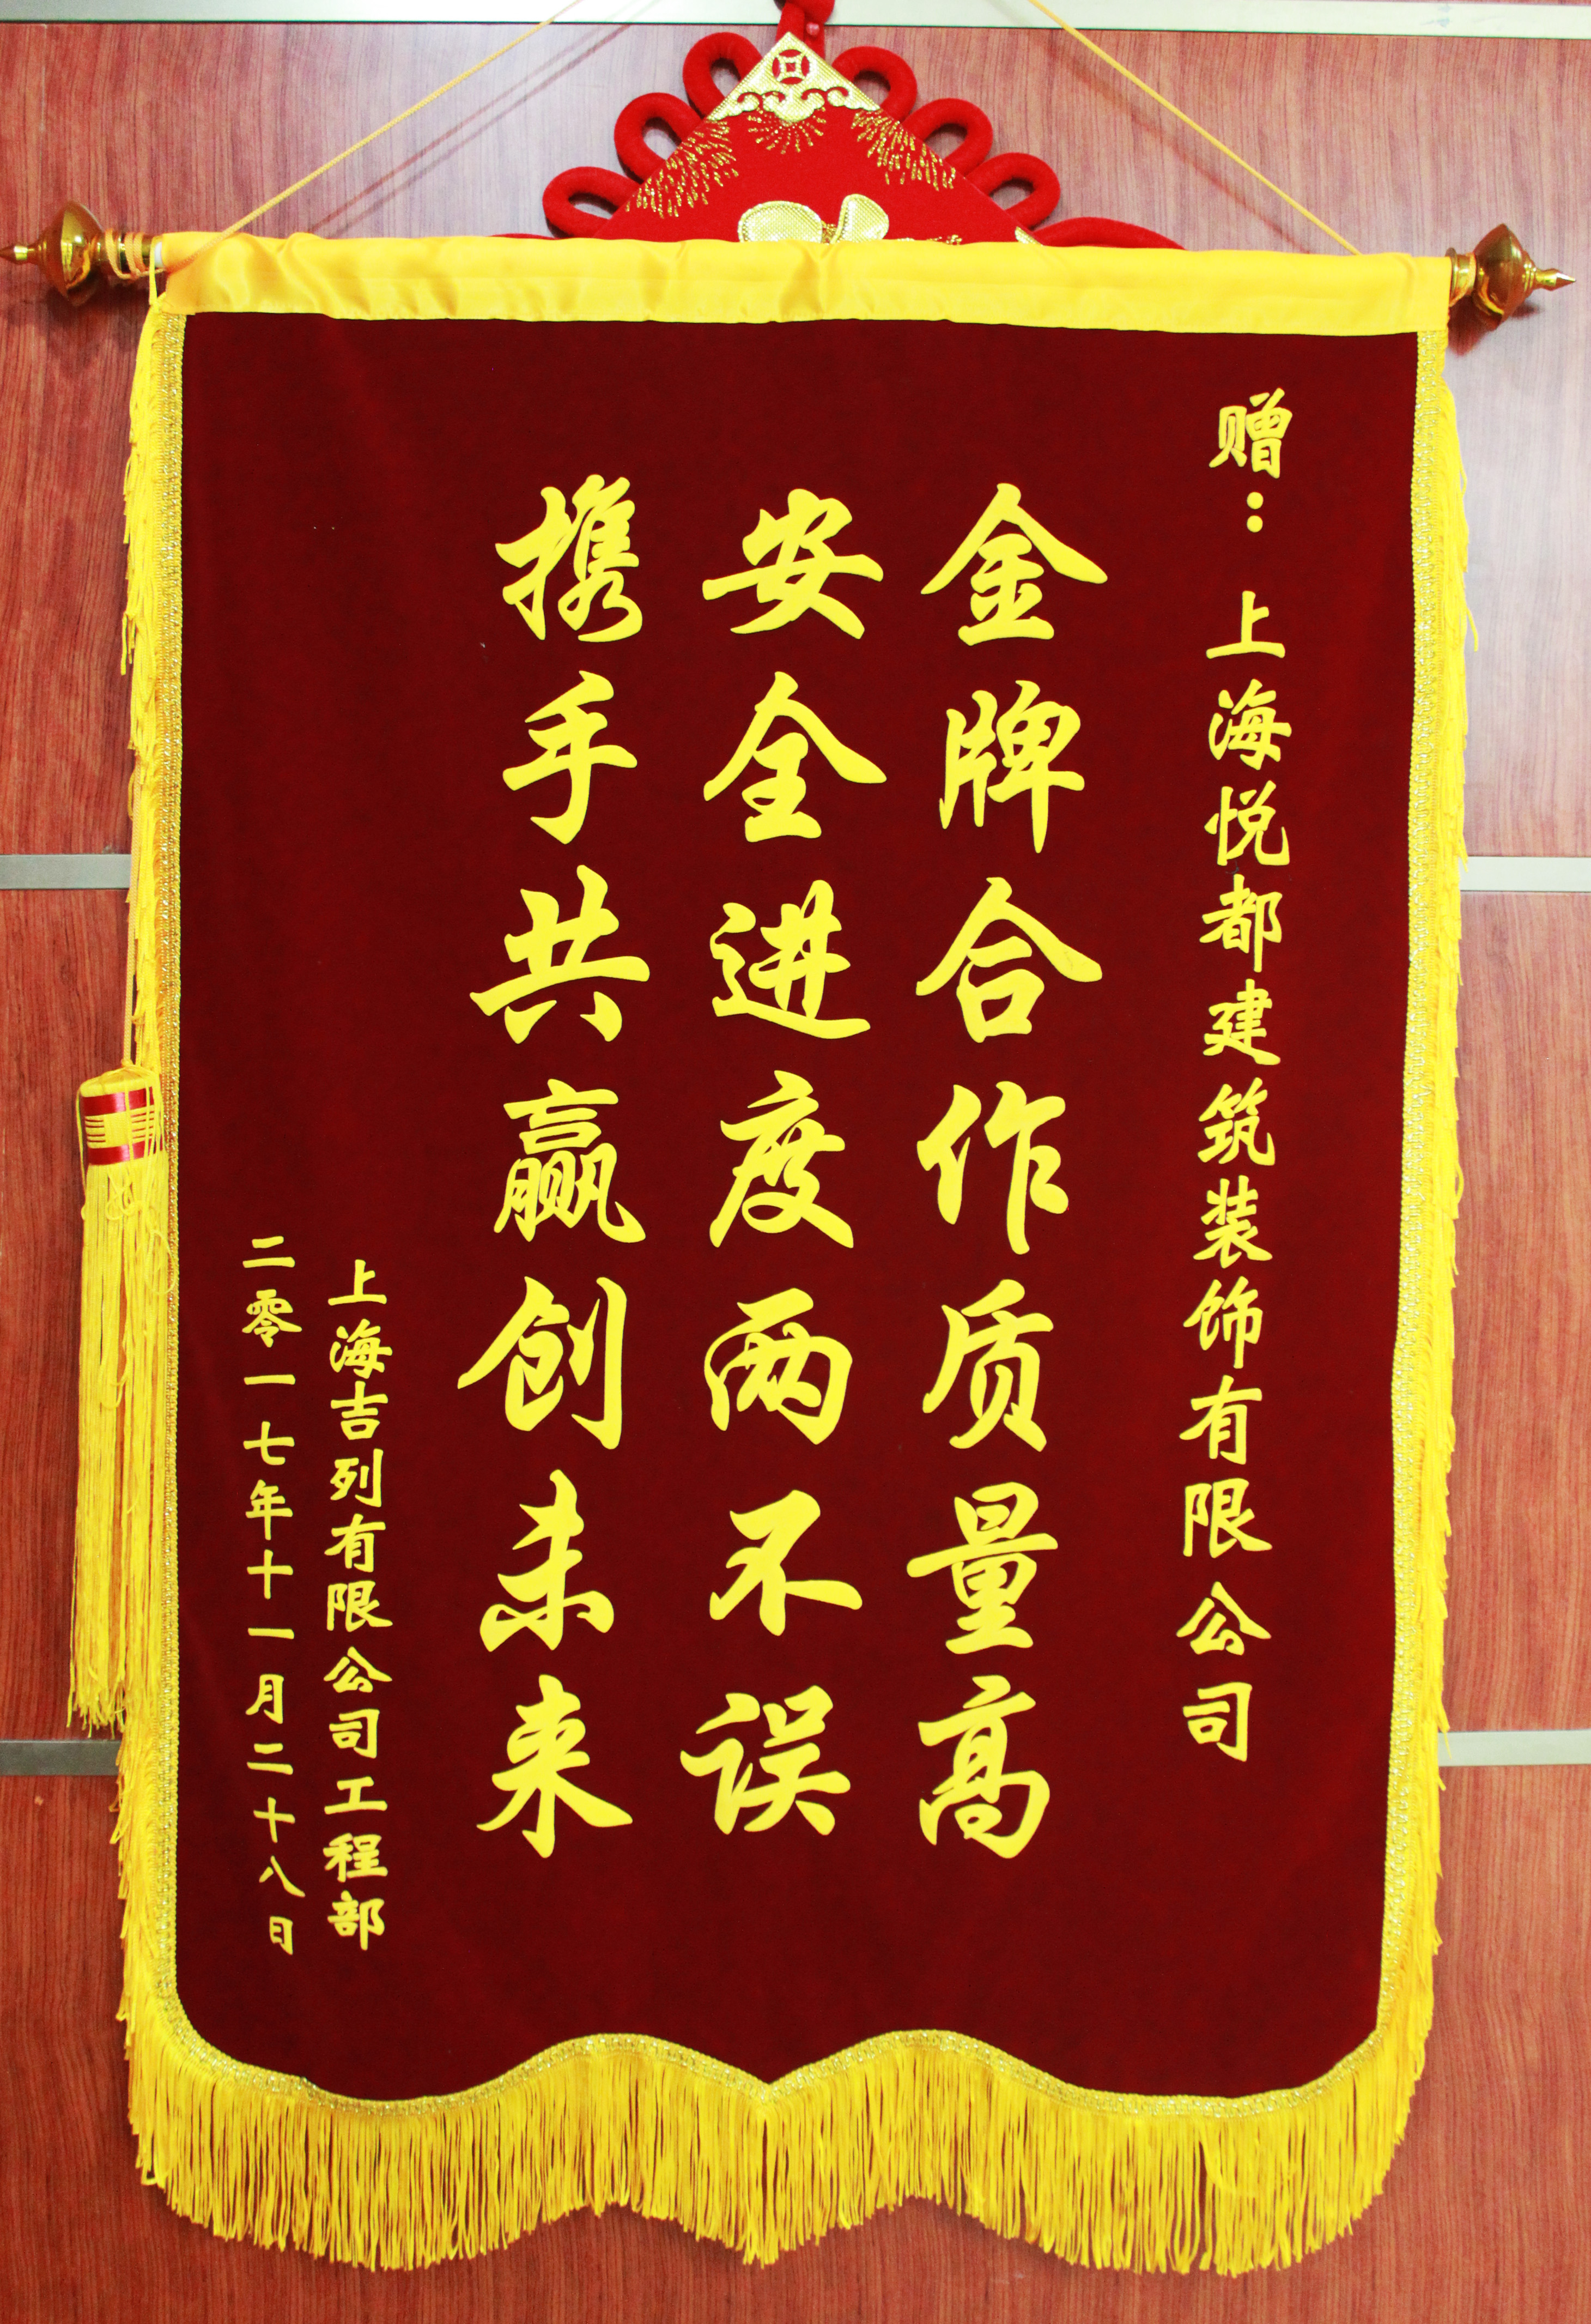 赠：上海悦都建筑装饰有限公司
金牌合作质量高
安全进度两不误
携手共赢创未来
上海吉列有限公司工程部
二零一七年十一月二十八日